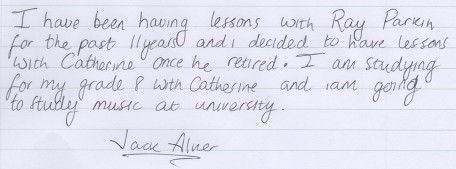 I have been having lessons with Ray Parkin
for the past 11 years and i decided to have lessons
with Catherine once he retired. I am studying
for my grade 8 with Catherine and iam going
to study music at university.
Jack Alner